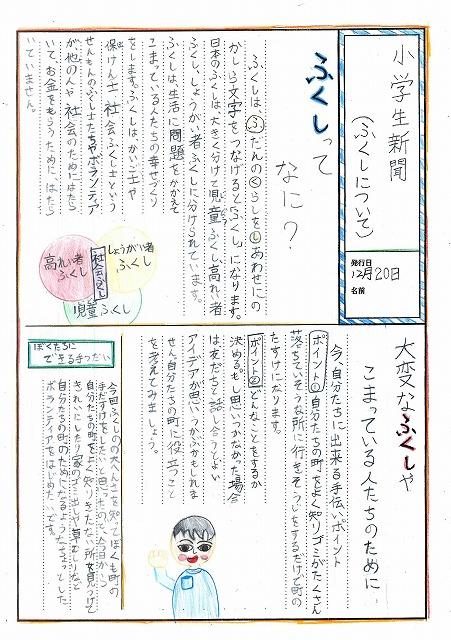 小学生新聞
(ふくしについて)
発行日
12月20日
名前
ふくしって
なに?
ふくしは、ふだんのくらしをしあわせにの
かしら文字をつなげると「ふくし」になります。
日本のふくしは大きく分けて児童ふくし、高れい者
ふくし、しょうがい者ふくしに分けられています。
ふくしは生活に問題をかかえて
こまっている人たちの幸せづくり
をします。ふくしは、かいご士や
保けん士、社会ふくし士という
せんもんのふくし士たちやボランティア
が、他の人や社会のためにはたら
いて、お金をもらうためにはたら
いていません。
高れい者
ふくし
しょうがい者
ふくし
社会ふくし
児童ふくし
大変なふくしや
こまっている人たちのために
今、自分たちに出来る手伝いポイント
ポイント①自分たちの町をよく知りゴミがたくさん
落ちていそうな所に行きそうじをするだけで町の
たすけになります。
ポイント②どんなことをするか
決める。もし思いつかなかった場合
は友だちと話し合うとよい
アイデアが思いつかぶかもしれま
せん自分たちの町に役立つこと
を考えてみましょう。
ぼくたちに
できる手つだい
今回ふくしのの大へんさを知ってぼくも町の
手だすけをしたいと思ったので、今日から
自分たちの町をよく知りきたない所を見つけて
きれいにしたり家のゴミ出しや草むしりなど
自分たちの町のためになるようなちょっとした
ボランティアをはじめたいです。